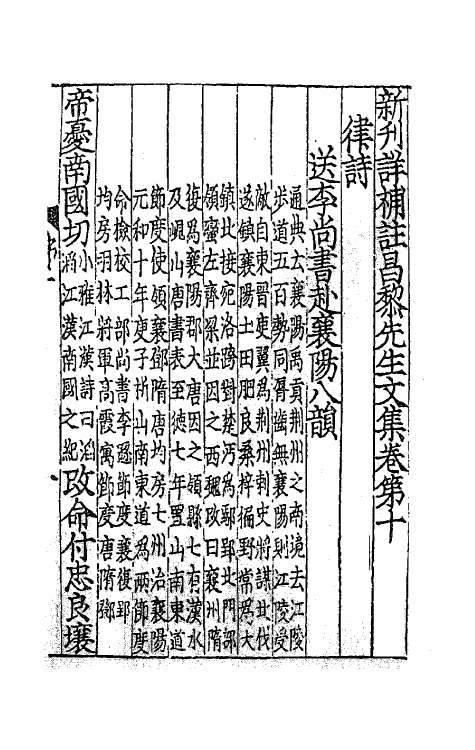 新刋詳補註昌黎先生文集卷第十
律詩
送李尚書赴襄陽八韻
通典云襄陽禹貢荆州之南境去江陵
步道五百勢同脣齒無襄陽則江陵受
敵自東晉庾翼為荆州刺史將謀北伐
遂鎮襄陽土田肥良桑梓徧野常為大
鎮北接宛洛跨對楚沔為鄢郢北門部
領蠻左齊梁並因之西魏改曰襄州隋
復為襄陽郡大唐因之領縣七有漢水
及峴山唐書表至徳七年置山南東道
節度使領襄鄧隋唐均房七州治襄陽
元和十年庚子析山南東道為兩節度
命檢校工部尚書李遜節度襄復郢
均房羽林將軍高霞寓節度唐隋鄧
帝憂南國切小雅江漢詩曰滔滔江漢南國之紀改命付忠良壤